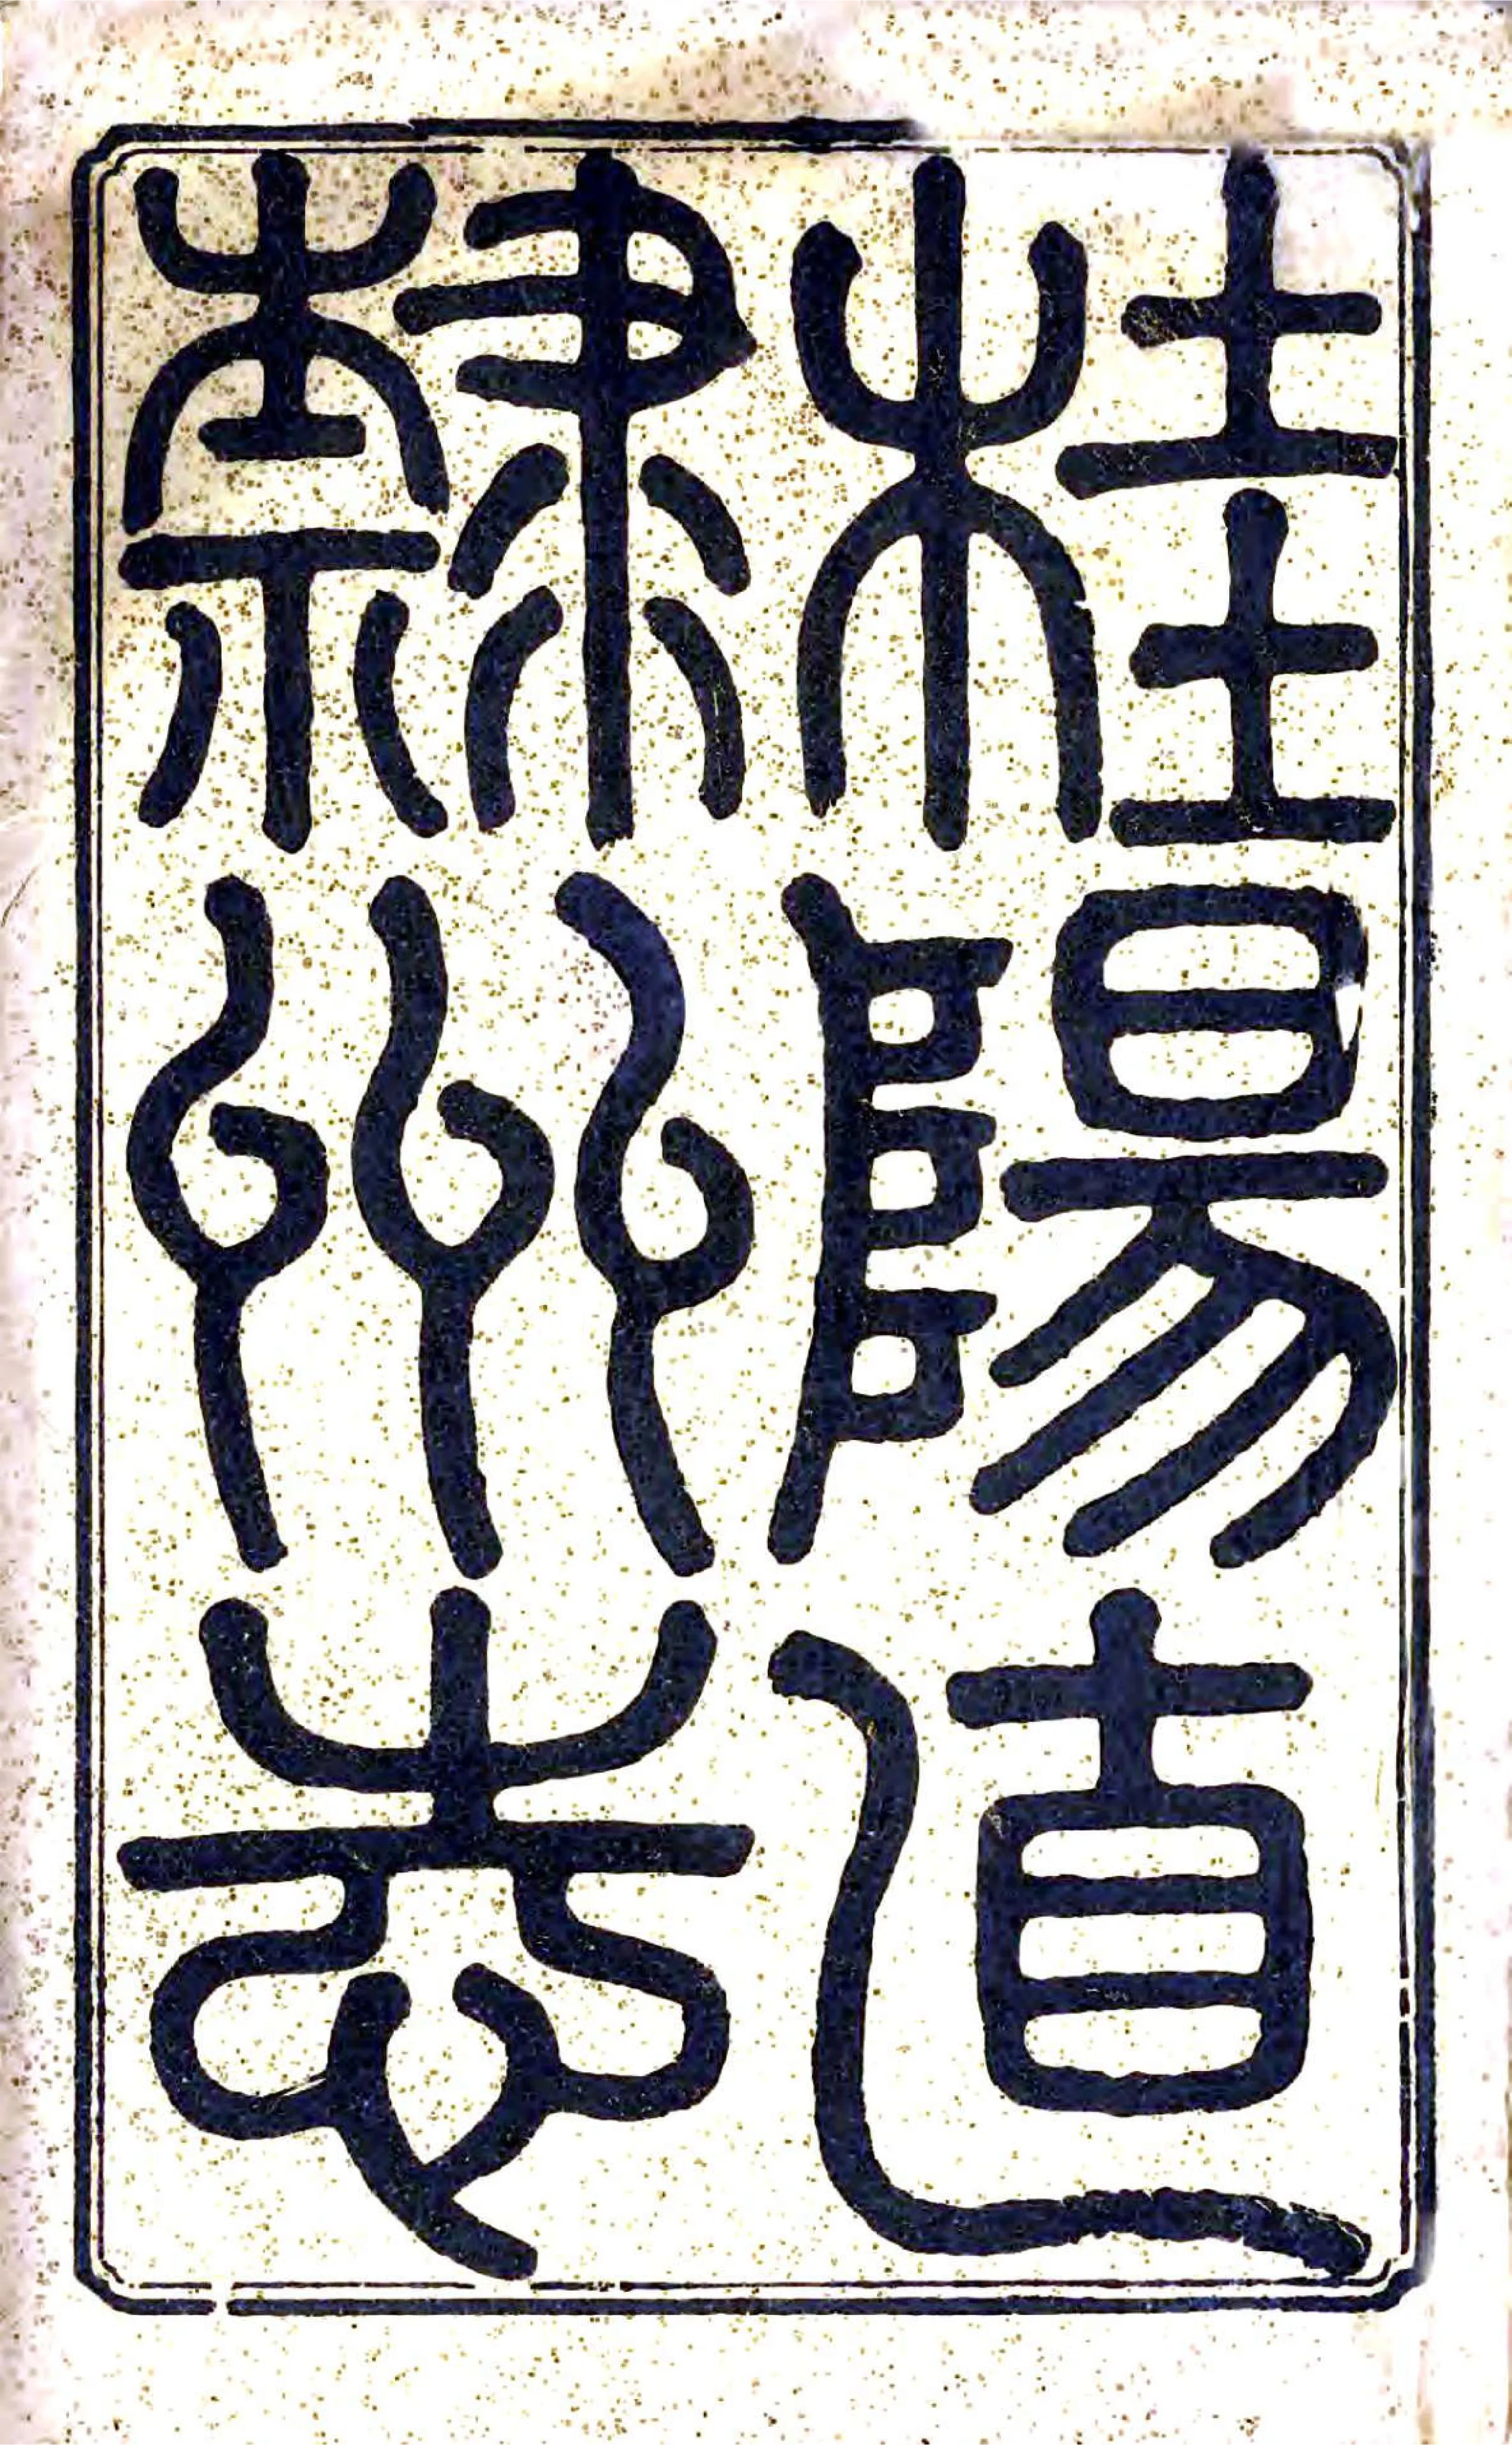 桂陽直
隸州志